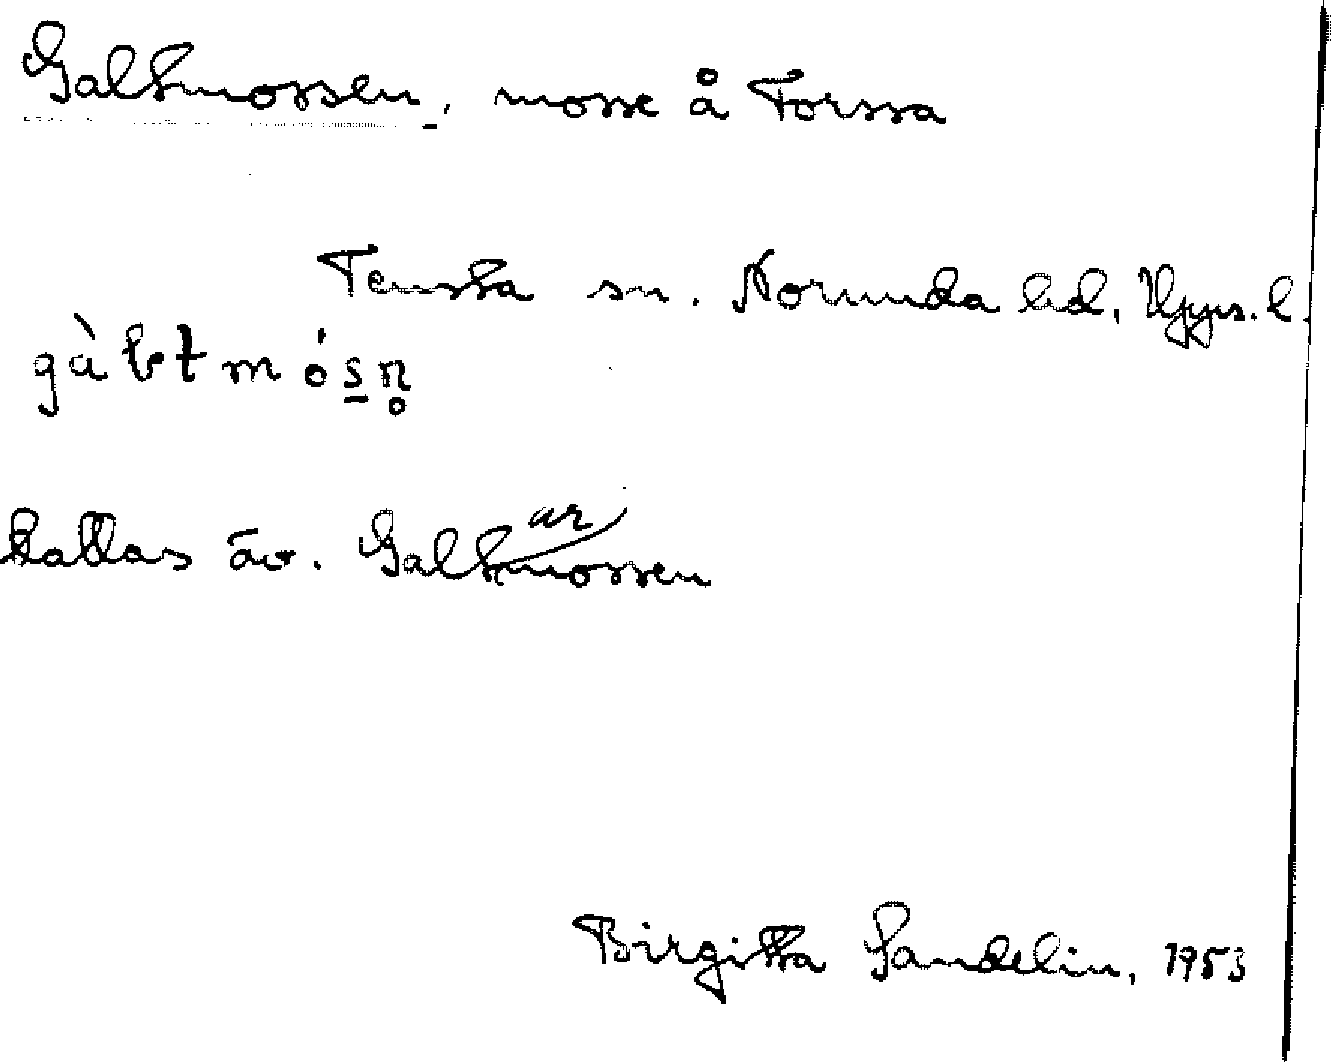 Galtmossen, mosse å Forssa
Tensta sn. Norunda hd, Upps. l.
gàltmósn̥
kallas äv. Galtarmossen
Birgitta Sandelin, 1953